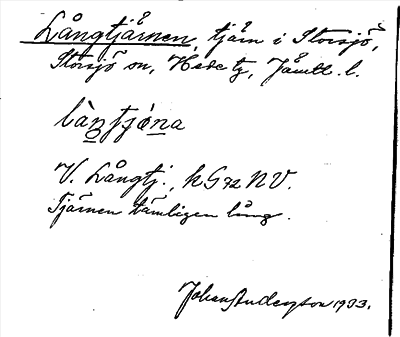 Långtjärnen, tjärn i Storsjö,
Storsjö sn, Hede tg, Jämtl. l.
làn̲tjón̲a
V. Långtj., k G 72 NV.
Tjärnen tämligen lång.
Johan Anderzson 1933.